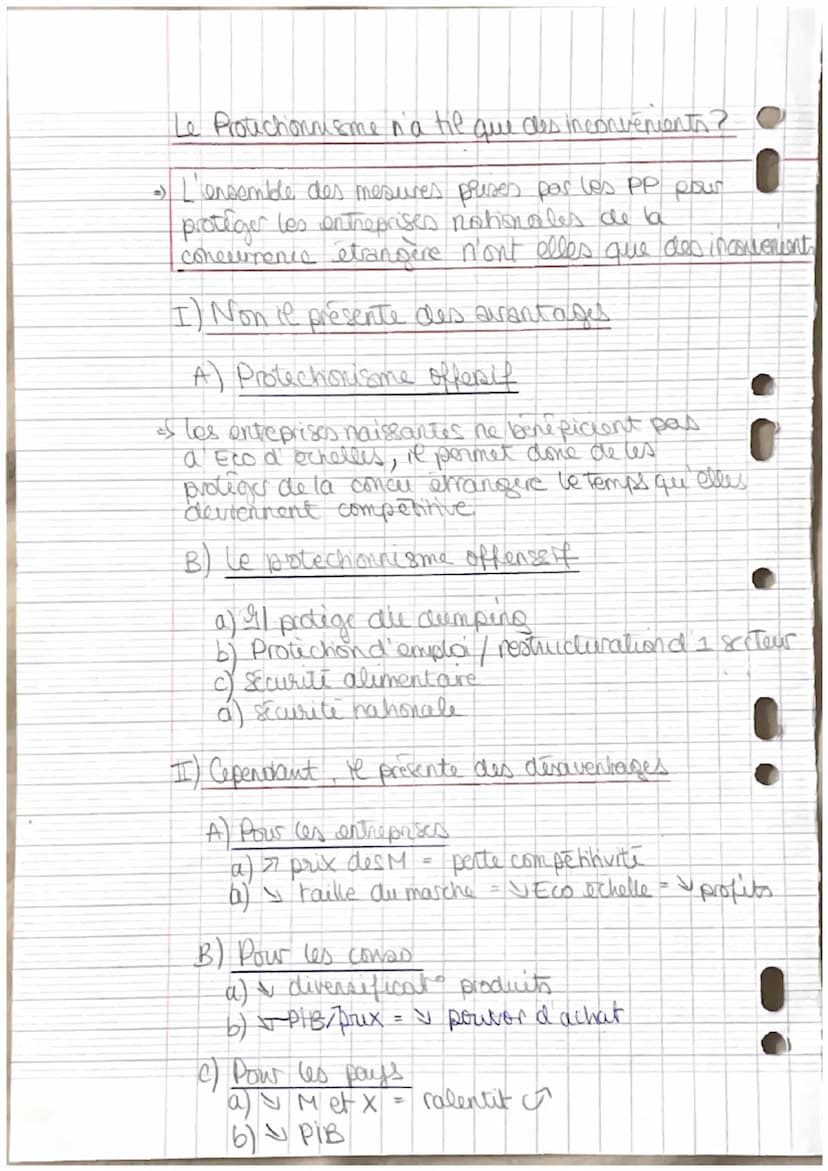 Le Protectionnisme n'a til que des inconvénients ?
=) L'ensemble des mesures prises par les PP pour
protéger les entreprises nationales de la
concurrence étrangère n'ont elles que des inconvenient
I) Non il présente des avantages
A) Protechonisme offensif
=> les entreprises naissantes ne bénéficient pas
d'Eco d'échelles, il permet donc de les
protéger de la concu étrangère le temps qu'elles
deviennent compétitive
B) Le protechonnisme offensif
a) Il protège du dumping
b) Protéction d'emploi / restructuration d'1 secteur
c) sécurité alimentaire
d) sécurité nationale
II) Cependant, il présente des désaventages
A) Pour les entreprises
a) ↗ prix des M = perte compétitivité
b) ↘ taille du marche = ↘ Eco echelle = ↘ profits
B) Pour les conso
a) ↘ diversificat° produits
b) PIB/prux = ↘ pouvor d'achat
C) Pour les pays
a) ↘ M et X = ralentit
b) ↘ PIB